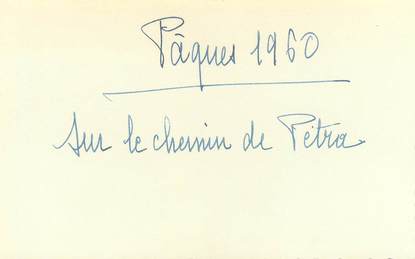 Pâques 1960
Sur le chemin de Pétra